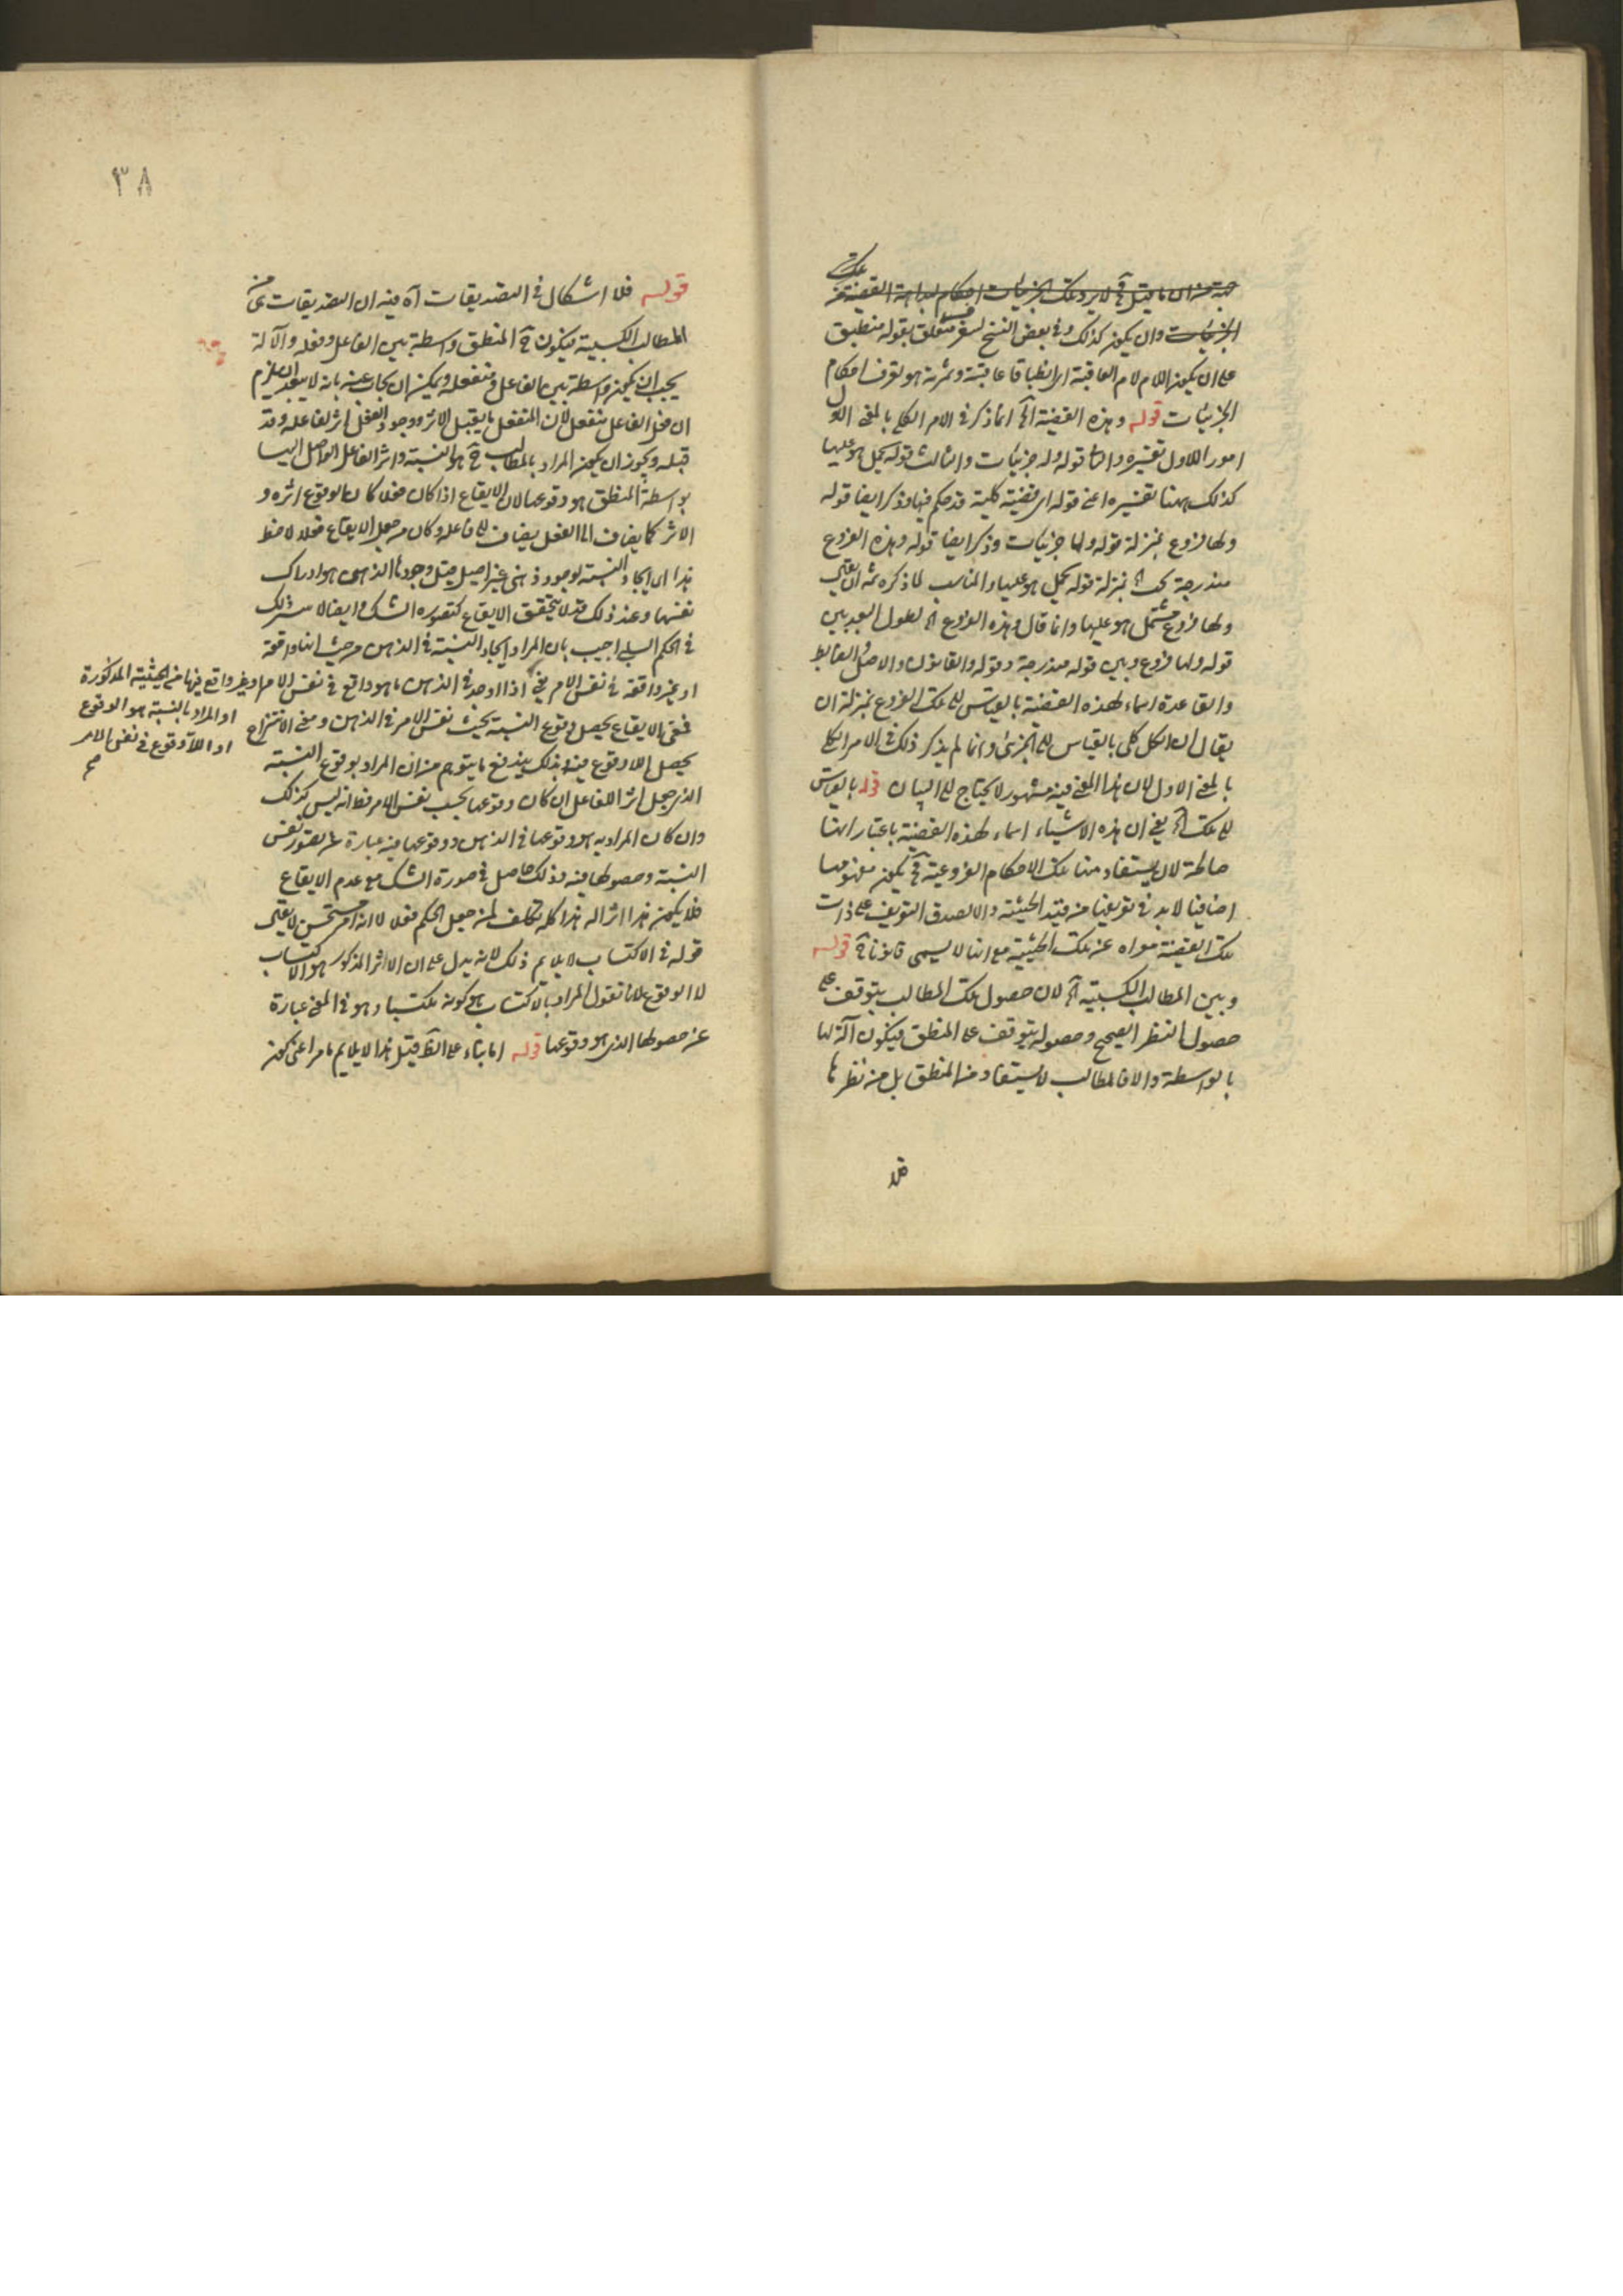 تلك
الجزئيات وان يكون كذلك وفى بعض النسخ ليتعرف متعلق بقوله منطبق
على ان يكون اللام لام العاقبة اى انطباقا عاقبته وثمرته هو تعرف احكام
الجزئيات قوله وهذه القضية آه انما ذكر فى الامر الكلى بالمعنى الاول
امورا الاول تفسيره والثانى قوله وله جزئيات والثالث قوله يحمل هو عليها
كذلك ههنا تفسيره اعنى قوله اى قضية كلية قد حكم فيها وذكر ايضا قوله
ولها فروع بمنزلة قوله ولها جزئيات وذكر ايضا قوله وهذه الفروع
مندرجة تحت آه بمنزلة قوله يحمل هو عليها والمناسب لما ذكره ثمه ان يقال
ولها فروع تشتمل هو عليها وانما قال وهذه الفروع آه لطول العهد بين
قوله ولها فروع وبين قوله مندرجة وقوله والقانون والاصل والضابط
والقاعدة اسماء لهذه القضية بالقياس الى تلك الفروع بمنزلة ان
يقال ان الكل كلى بالقياس الى الجزئى وانما لم يذكر ذلك فى الامر الكلى
بالمعنى الاول لان هذا المعنى فيه مشهور لا يحتاج الى البيان قوله بالقياس
الى تلك آه يعنى ان هذه الاشياء اسماء لهذه القضية باعتبار انها
صالحة لان يستفاد منها تلك الاحكام الفروعية فح يكون مفهومها
اضافيا لابد فى تعريفها من قيد الحيثية والا لصدق التعريف على ذات
تلك القضية معراه عن تلك الحيثية مع انها لا يسمى قانونا ح قوله
وبين المطالب الكسبية آه لان حصول تلك المطالب يتوقف على
حصول النظر الصحيح وحصوله يتوقف على المنطق فيكون آلة لها
بالواسطة والا فالمطالب لا يستفاد من المنطق بل من نظرها
فلا
٣٨
قوله فلا اشكال فى التصديقات آه فيه ان التصديقات هى من
المطالب الكسبية فيكون ح المنطق واسطة بين الفاعل وفعله والآلة
يجب ان يكون واسطة بين الفاعل ومنفعله ويمكن ان يجاب عنه بانه لا يبعد ان يلزم
ان فعل الفاعل منفعل لان المنفعل ما يقبل الاثر ووجود الفعل اثر لفاعله وقد
قبله ويجوز ان يكون المراد بالمطالب ح هو النسبة واثر الفاعل الواصل اليها
بواسطة المنطق هو وقوعها لان الايقاع اذا كان فعلا كان الوقوع اثره و
الاثر كما يضاف الى الفعل يضاف الى فاعله وكان من جعل الايقاع فعلا لاحظ
هذا اى ايجاد النسبة لوجود ذهنى غير اصيل قيل وجودها الذهنى هو ادراك
نفسها وعند ذلك قد لا يتحقق الايقاع كتصوره الشك وايضا لا
فى الحكم السلبى اجيب بان المراد ايجاد النسبة فى الذهن من حيث انها واقعة
او غير واقعة فى نفس الامر يعنى اذا اوجد فى الذهن ما هو واقع فى نفس الامر او غير واقع فيها من الحيثية المذكورة
او المراد بالنسبة هو الوقوع
او اللا وقوع فى نفس الامر
صح
فمعنى الايقاع يحصل وقوع النسبة بحيث نفس الامر فى الذهن ومعنى الانتزاع
يحصل اللا وقوع فيه وبذلك يندفع ما يتوهم من ان المراد بوقوع النسبة
الذى جعل اثرا للفاعل ان كان وقوعها بحسب نفس الامر فظ انه ليس كذلك
وان كان المراد به هو وقوعها فى الذهن ووقوعها فيه عبارة عن تصور نفس
النسبة وحصولها فيه وذلك حاصل فى صورة الشك مع عدم الايقاع
فلا يكون هذا اثرا له هذا كله تكلف لمن جعل الحكم فعلا لا انه امر مستحسن لا يقال
قوله فى الاكتساب لا يلايم ذلك لانه يدل على ان الاثر المذكور هو الاكتساب
لا الوقوع لانا نقول المراد بالاكتساب هو كونه مكتسبا وهو فى المعنى عبارة
عن حصولها الذى هو وقوعها قوله اما بناء على الظ قيل هذا لا يلايم ما مر اعنى كون